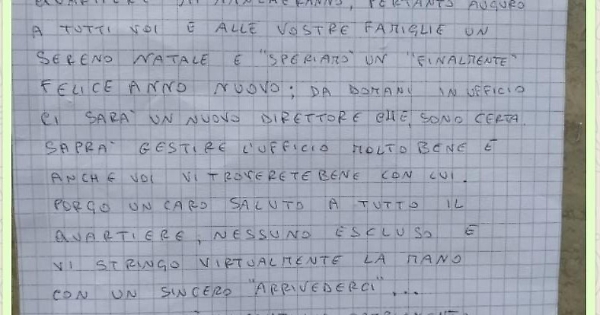 QUARTIERE MI MANCHERANNO, PERTANTO AUGURO
A TUTTI VOI E ALLE VOSTRE FAMIGLIE UN
SERENO NATALE E "SPERIAMO" UN "FINALMENTE"
FELICE ANNO NUOVO; DA DOMANI IN UFFICIO
CI SARA' UN NUOVO DIRETTORE CHE, SONO CERTA
SAPRA' GESTIRE L'UFFICIO MOLTO BENE E
ANCHE VOI VI TROVERETE BENE CON LUI.
PORGO UN CARO SALUTO A TUTTO IL
QUARTIERE, NESSUNO ESCLUSO E
VI STRINGO VIRTUALMENTE LA MANO
CON UN SINCERO "ARRIVEDERCI"...